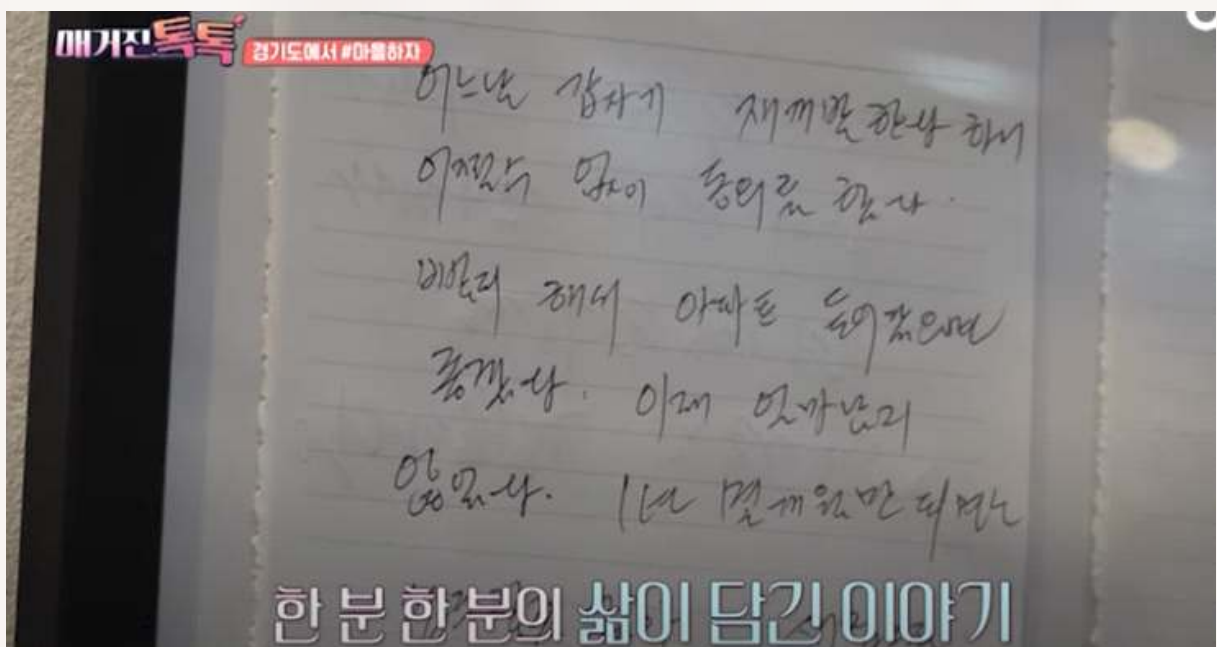 매거진톡톡 경기도에서 #마을하자
어느날 갑자기 재개발 한다 하니
어쩔수 없이 동의를 했다.
해서 아파트 들어갔으면
좋겠다. 이제 얼마남지
않았다. 1년 몇개월만 되면
한 분 한 분의 삶이 담긴 이야기